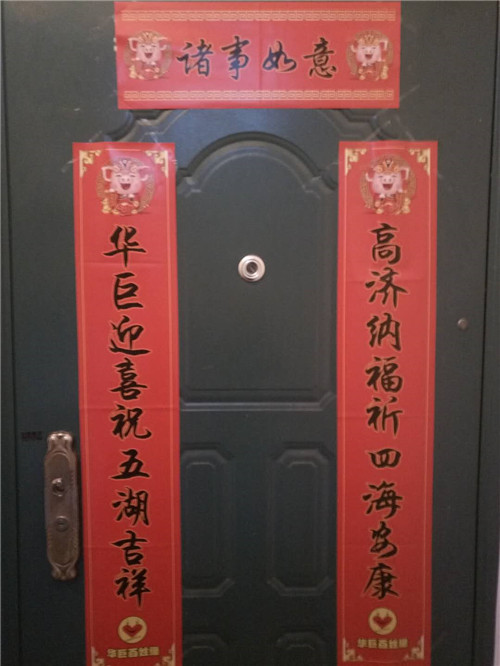 诸事如意
华巨迎喜祝五湖吉祥
华巨百姓缘
高济纳福祈四海安康
华巨百姓缘